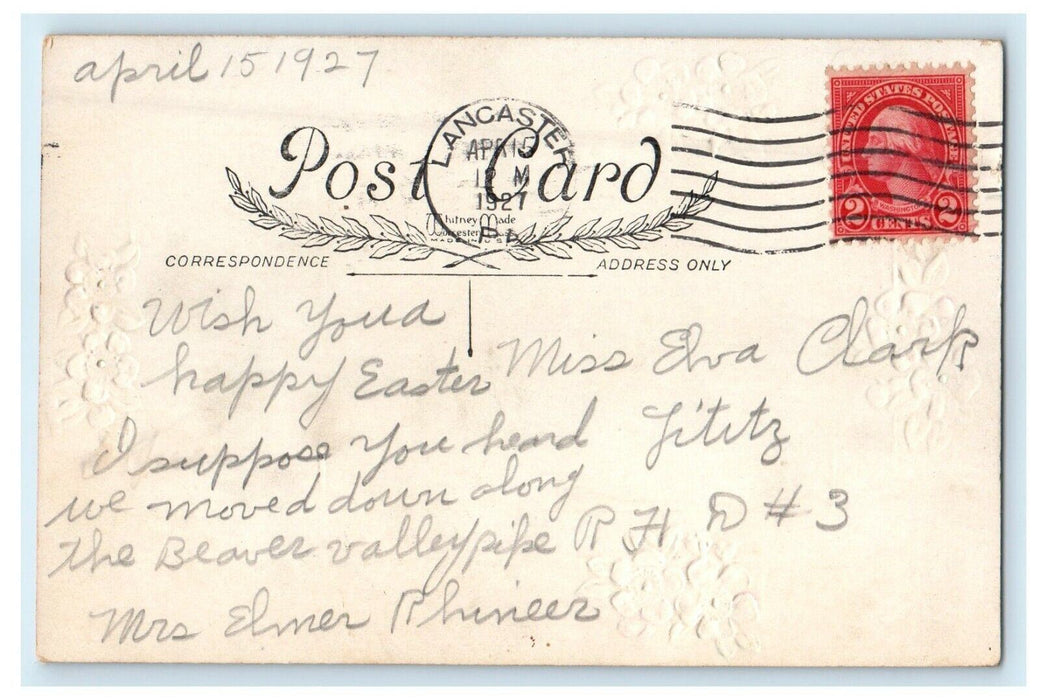 april 15 1927
LANCASTER
APR 15
12 M
1927
PA
UNITED STATES POSTAGE
WASHINGTON
2 CENTS 2
Post Card
Whitney Made
Worcester, Mass
MADE IN U.S.A.
CORRESPONDENCE
ADDRESS ONLY
Wish you a
happy Easter
I suppose you heard
we moved down along
the Beaver valley pipe
Mrs Elmer Rhineer
Miss Elva Clark
Lititz
R F D # 3